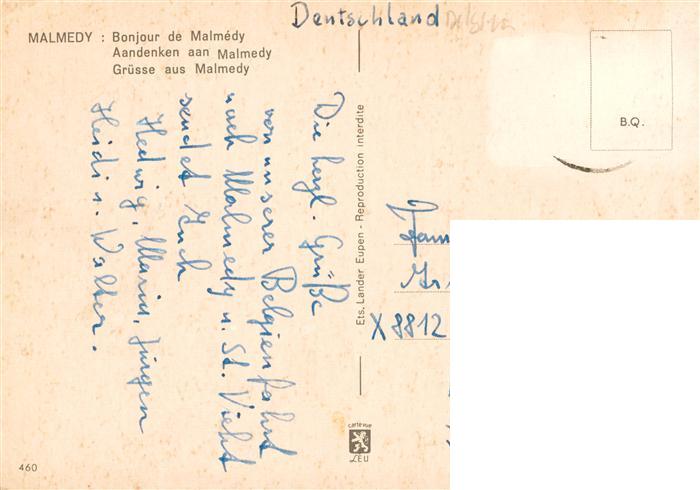 Deutschland
MALMEDY : Bonjour de Malmédy
Aandenken aan Malmedy
Grüsse aus Malmedy
B.Q.
Die herzl. Grüße
von unserer Belgienfahrt
nach Malmedy u. St. Vieht
sendet Euch
Hedwig, Maria, Jürgen
Heidi u. Walter.
Ets. Lander Eupen - Reproduction interdite
X 8812
carte vue
LEU
460